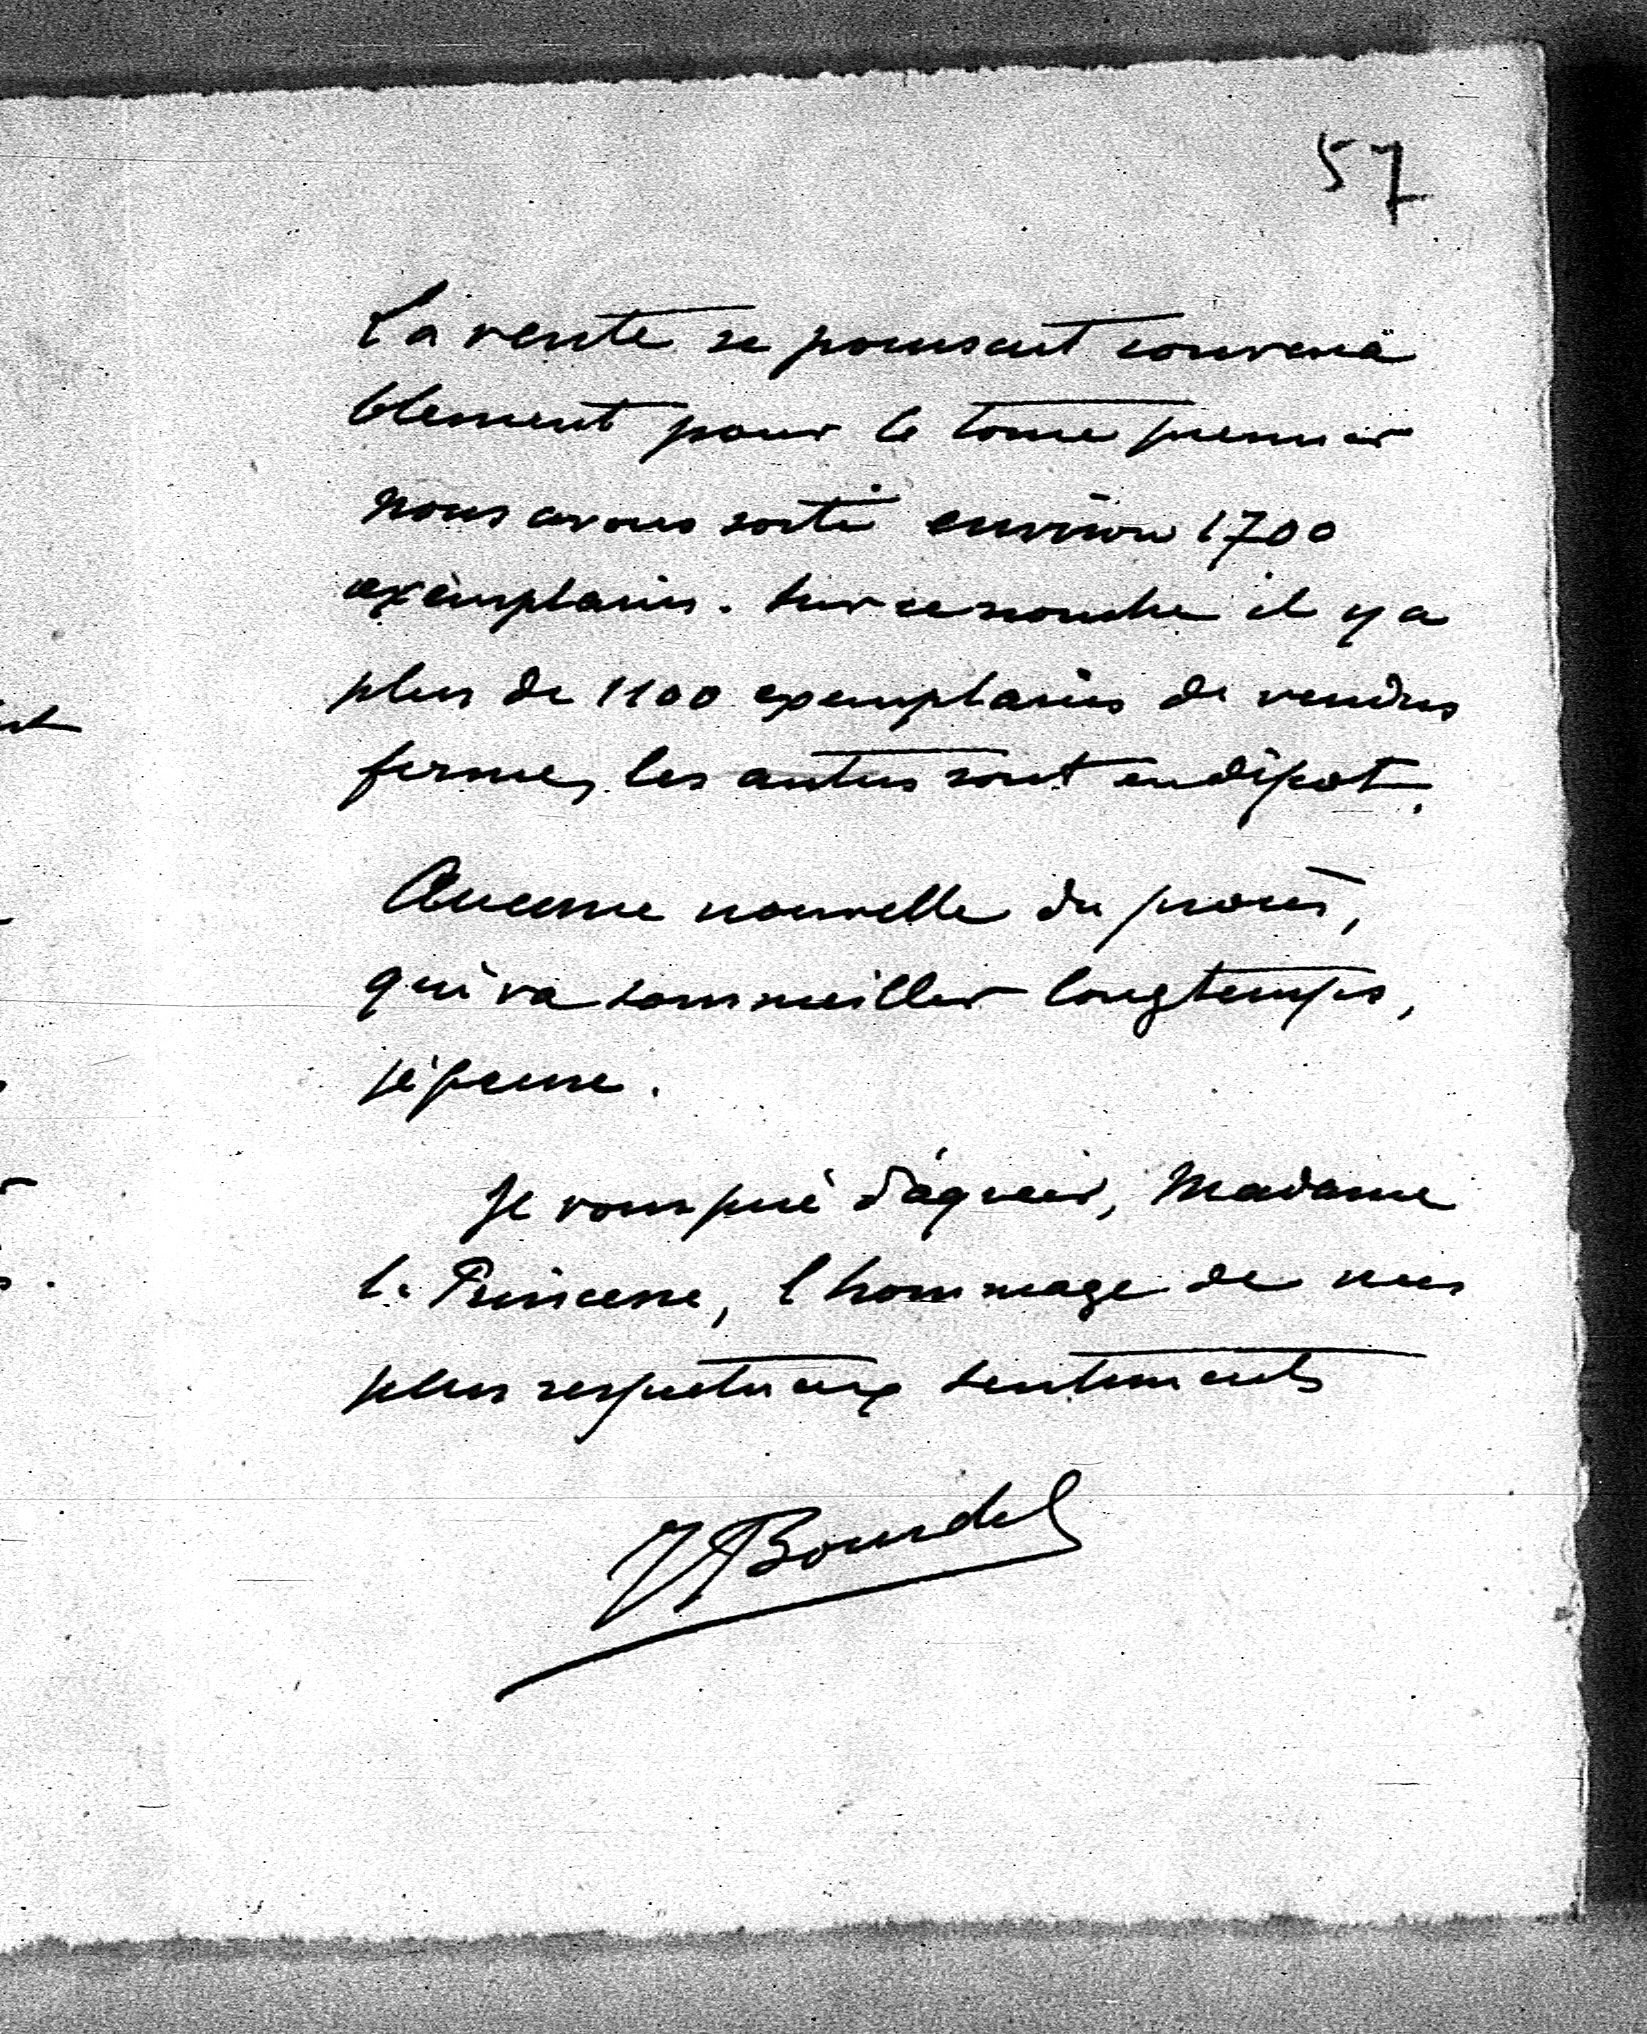 57
La vente se poursuit convena
blement pour le tome premier
nous avons sorti environ 1700
exemplaires. Sur ce nombre il y a
plus de 1100 exemplaires de vendus
ferme, les autres sont en dépot.
Aucune nouvelle du procès,
qui va sommeiller longtemps,
je pense.
Je vous prie d'agréer, Madame
la Princesse, l'hommage de mes
plus respectueux sentiments
Bourdel